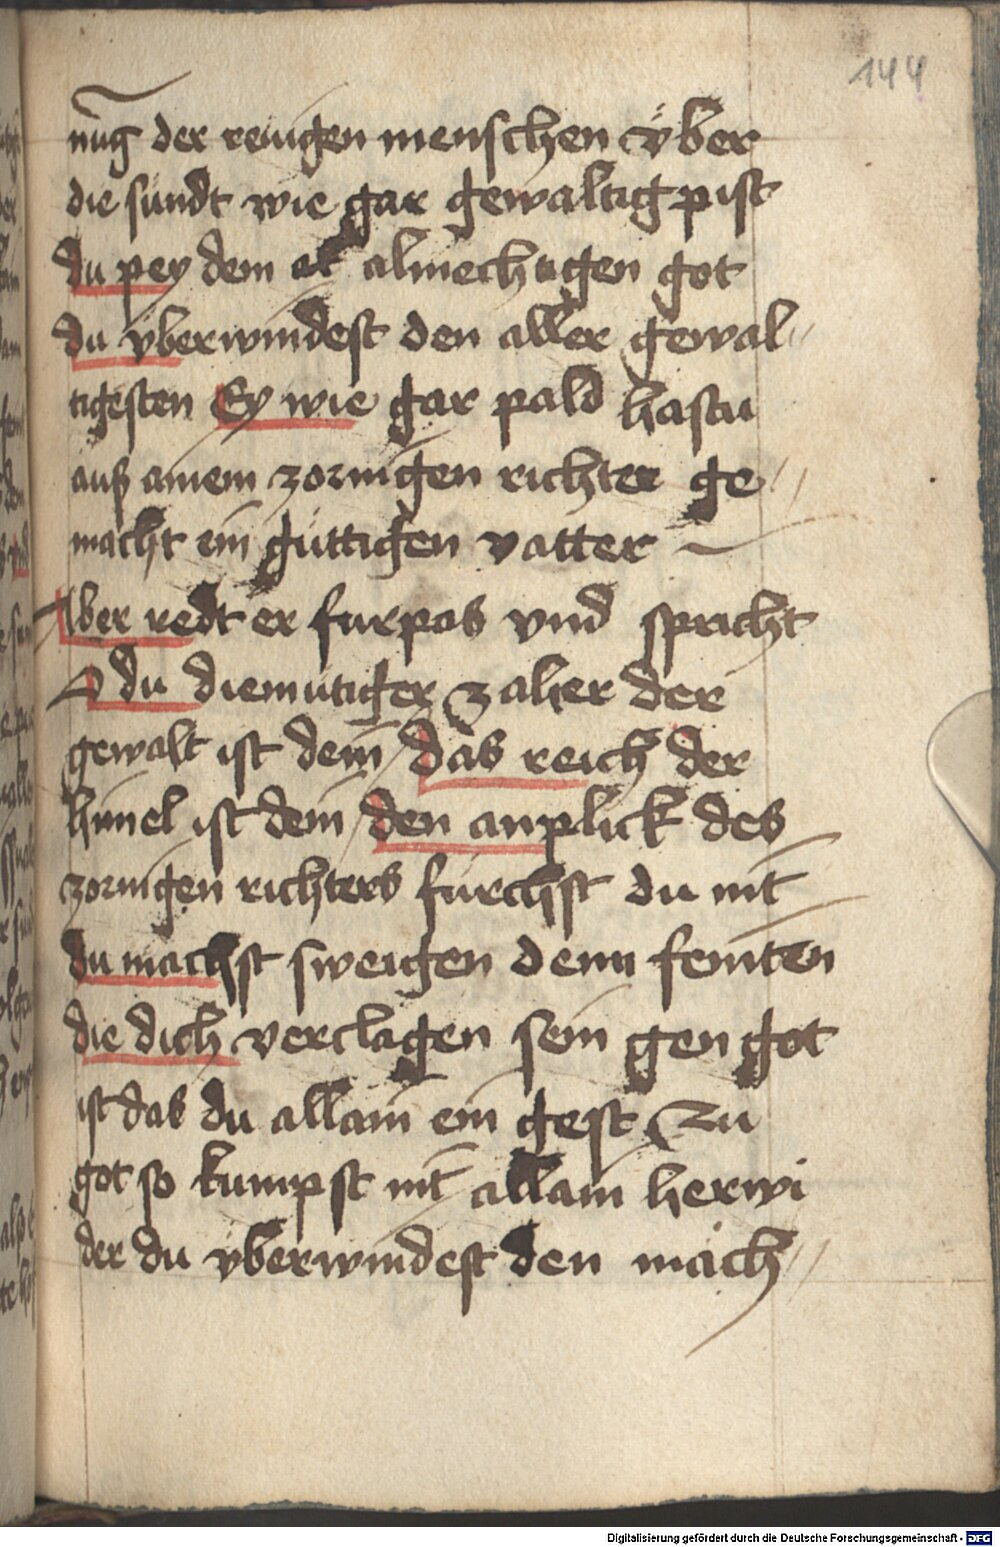 144
nũg der reuigen menschen vͤber
die sündt wie gar gewaltig pist
du pey dem al almechtigen got
du vberwindest den aller gewal„
tigesten Ey wie gar pald hastu
auß ainem zornigen richter ge„
macht ein güttigen vatter
Aber redt er furpas vnd spricht
O du diemütiger zaher der
gewalt ist dein das reich der
himel ist dein den anplick des
zornigen richters fürchst du nit
du machst sweigen denn feinten
die dich verclagen sein gen got
ist das du allain ein gest zu
got so kumpst nit allain herwi
der du vberwindest den mäch„
Digitalisierung gefördert durch die Deutsche Forschungsgemeinschaft - DFG